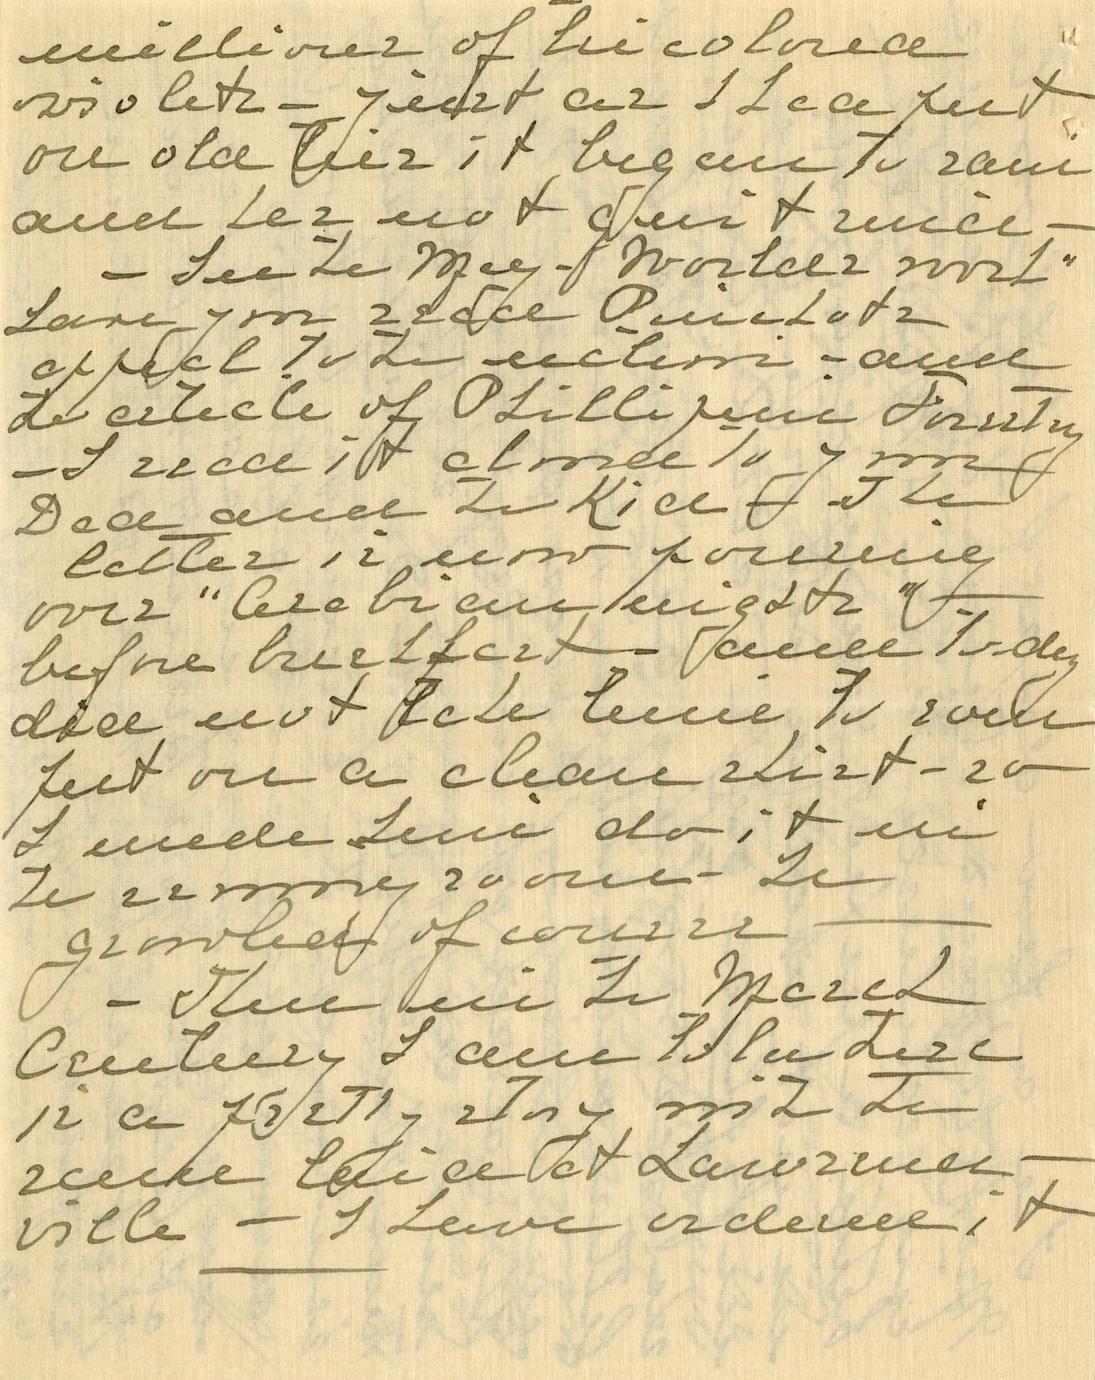 millions of tricolored
violets - just as I had put
on old ties it began to rain
and has not quit since -
- See the May - "Worlds work"
have you read Pinchots
appeal to the nation - and
the article of Phillipine Forestry
- I read it aloud to your
Dad and the Kid - The
latter is now pouring
over "Arabian nights" -
before breakfast - and to-day
did not take time to even
put on a clean shirt - so
I made him do it in
the sewing room - he
growled of course
- Then in the March
Century I am told there
is a pretty story with the
scene laid at Lawrence-
ville - I have ordered it